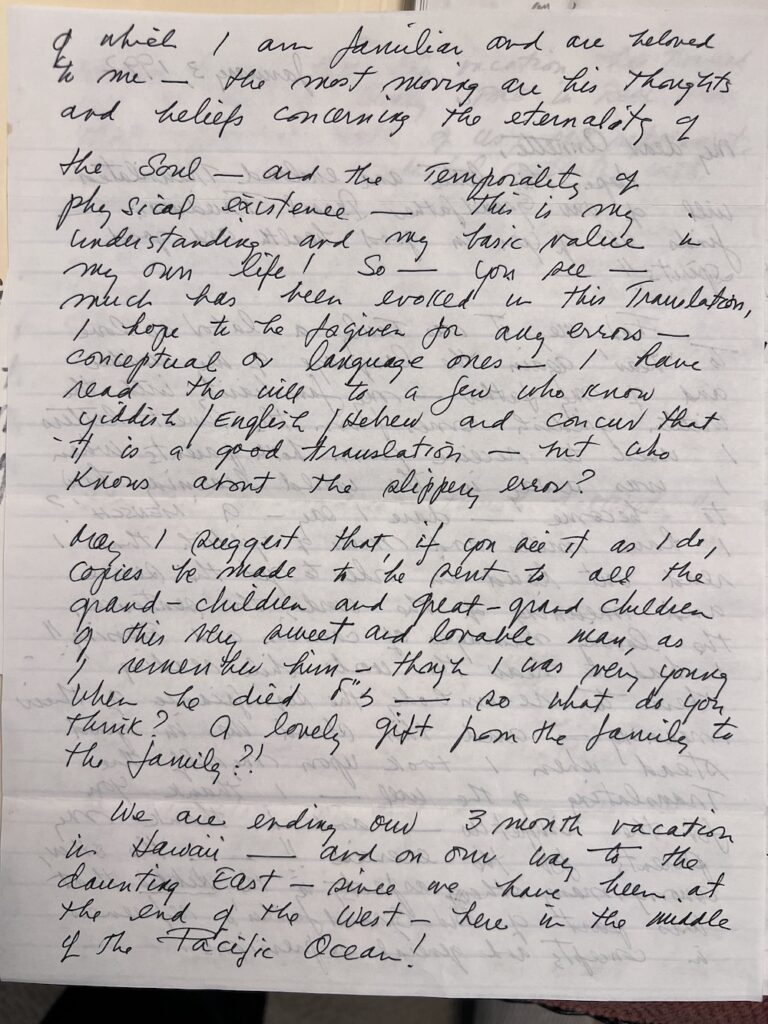 of which I am familiar and are beloved
to me — the most moving are his thoughts
and beliefs concerning the eternality of
the Soul — and the Temporality of
physical existence — This is my
understanding and my basic value in
my own life! So — you see —
much has been evoked in this Translation,
I hope to be forgiven for any errors —
conceptual or language ones — I have
read the will to a few who know
Yiddish / English / Hebrew and concur that
it is a good translation — but who
knows about the slippery error?
May I suggest that, if you see it as I do,
copies be made to be sent to all the
grand-children and great-grand children
of this very sweet and lovable man, as
I remember him — though I was very young
when he died ז"ל — so what do you
think? A lovely gift from the family to
the family?!
We are ending our 3 month vacation
in Hawaii — and on our way to the
daunting East — since we have been at
the end of the West — here in the middle
of the Pacific Ocean!